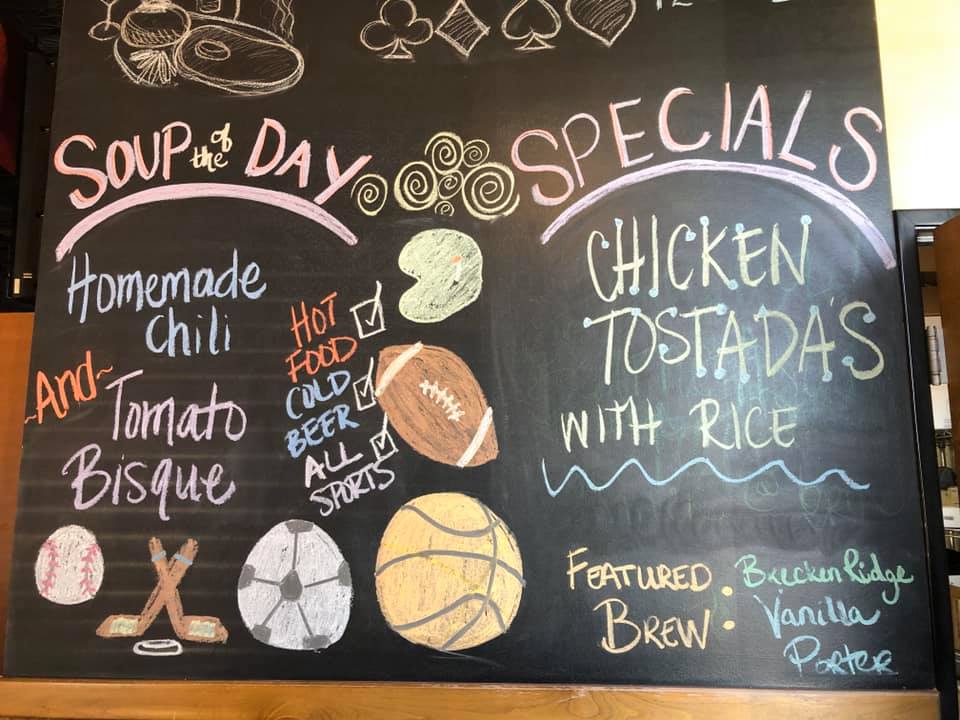 SOUP of the DAY
Homemade
Chili
~And~
Tomato
Bisque
HOT
FOOD
COLD
BEER
ALL
SPORTS
SPECIALS
CHICKEN
TOSTADA'S
WITH RICE
FEATURED
BREW:
BreckenRidge
Vanilla
Porter